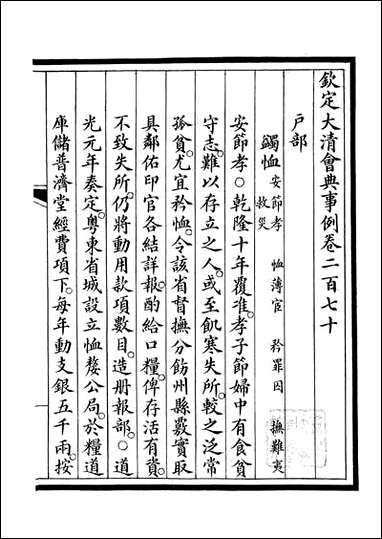 欽定大清會典事例卷二百七十
戶部
蠲恤 安節孝 恤薄宦 矜罪囚 撫難夷
救災
安節孝○乾隆十年覆准。孝子節婦中有食貧
守志。難以存立之人。或至飢寒失所。較之泛常
孤貧。尤宜矜恤。令該省督撫分飭州縣覈實取
具鄰佑印官各結詳報。酌給口糧。俾存活有資。
不致失所。仍將動用款項數目。造册報部。○道
光元年奏定。粵東省城設立恤嫠公局。於糧道
庫儲普濟堂經費項下。每年動支銀五千兩。按